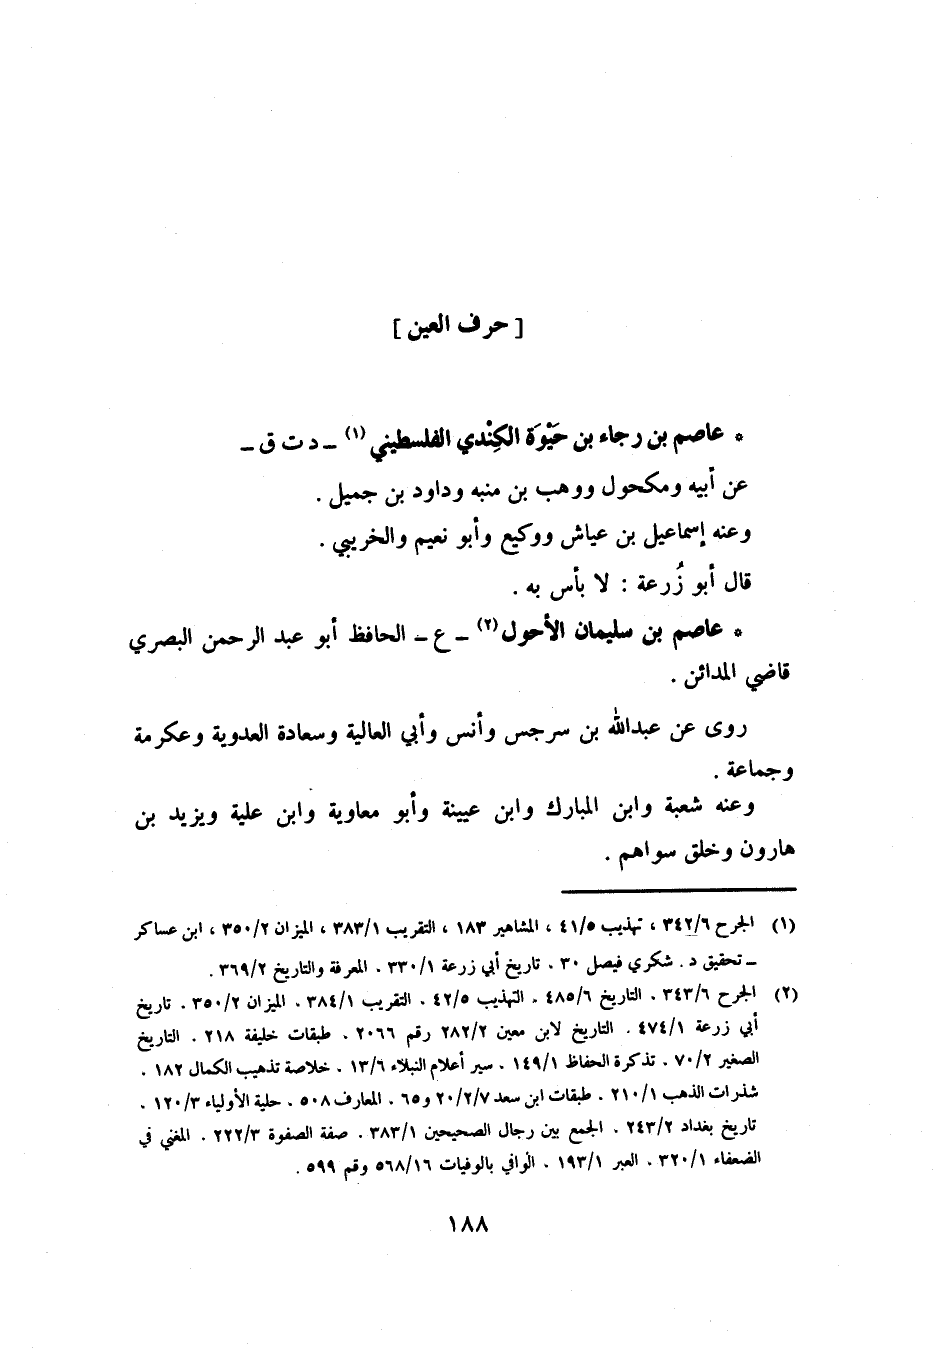 [ حرف العين ]
* عاصم بن رجاء بن حَيْوَة الكِنْدي الفلسطيني (١) ــ د ت ق ــ
عن أبيه ومكحول ووهب بن منبه وداود بن جميل .
وعنه إسماعيل بن عياش ووكيع وأبو نعيم والخريبي .
قال أبو زُرعة : لا بأس به .
* عاصم بن سليمان الأحول (٢) ــ ع ــ الحافظ أبو عبد الرحمن البصري
قاضي المدائن .
روى عن عبدالله بن سرجس وأنس وأبي العالية وسعادة العدوية وعكرمة
وجماعة .
وعنه شعبة وابن المبارك وابن عيينة وأبو معاوية وابن علية ويزيد بن
هارون وخلق سواهم .
(١) الجرح ٣٤٢/٦ ، تهذيب ٤١/٥ ، المشاهير ١٨٣ ، التقريب ٣٨٣/١ ، الميزان ٣٥٠/٢ ، ابن عساكر
ــ تحقيق د . شكري فيصل ٣٠ . تاريخ أبي زرعة ٣٣٠/١ . المعرفة والتاريخ ٣٦٩/٢ .
(٢) الجرح ٣٤٣/٦ . التاريخ ٤٨٥/٦ . التهذيب ٤٢/٥ . التقريب ٣٨٤/١ . الميزان ٣٥٠/٢ . تاريخ
أبي زرعة ٤٧٤/١ . التاريخ لابن معين ٢٨٢/٢ رقم ٢٠٦٦ . طبقات خليفة ٢١٨ . التاريخ
الصغير ٧٠/٢ . تذكرة الحفاظ ١٤٩/١ . سير أعلام النبلاء ١٣/٦ . خلاصة تذهيب الكمال ١٨٢ .
شذرات الذهب ٢١٠/١ . طبقات ابن سعد ٢٠/٢/٧ و٦٥ . المعارف ٥٠٨ . حلية الأولياء ١٢٠/٣ .
تاريخ بغداد ٢٤٣/٢ . الجمع بين رجال الصحيحين ٣٨٣/١ . صفة الصفوة ٢٢٢/٣ . المغني في
الضعفاء ٣٢٠/١ . العبر ١٩٣/١ . الوافي بالوفيات ٥٦٨/١٦ وقم ٥٩٩ .
١٨٨